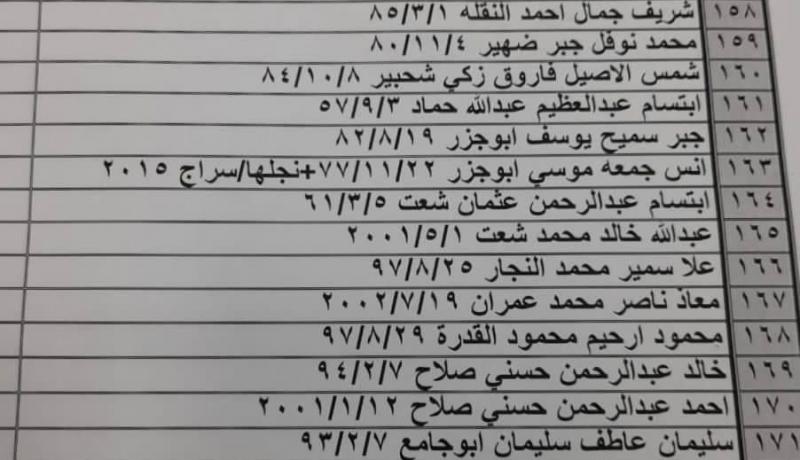 ١٥٨ شريف جمال احمد النقله ٨٥/٣/١
١٥٩ محمد نوفل جبر ضهير ٨٠/١١/٤
١٦٠ شمس الاصيل فاروق زكي شحبير ٨٤/١٠/٨
١٦١ ابتسام عبدالعظيم عبدالله حماد ٥٧/٩/٣
١٦٢ جبر سميح يوسف ابوجزر ٨٢/٨/١٩
١٦٣ انس جمعه موسي ابوجزر ٧٧/١١/٢٢+نجلها/سراج ٢٠١٥
١٦٤ ابتسام عبدالرحمن عثمان شعت ٦١/٣/٥
١٦٥ عبدالله خالد محمد شعت ٢٠٠١/٥/١
١٦٦ علا سمير محمد النجار ٩٧/٨/٢٥
١٦٧ معاذ ناصر محمد عمران ٢٠٠٢/٧/١٩
١٦٨ محمود ارحيم محمود القدرة ٩٧/٨/٢٩
١٦٩ خالد عبدالرحمن حسني صلاح ٩٤/٢/٧
١٧٠ احمد عبدالرحمن حسني صلاح ٢٠٠١/١/١٢
١٧١ سليمان عاطف سليمان ابوجامع ٩٣/٢/٧